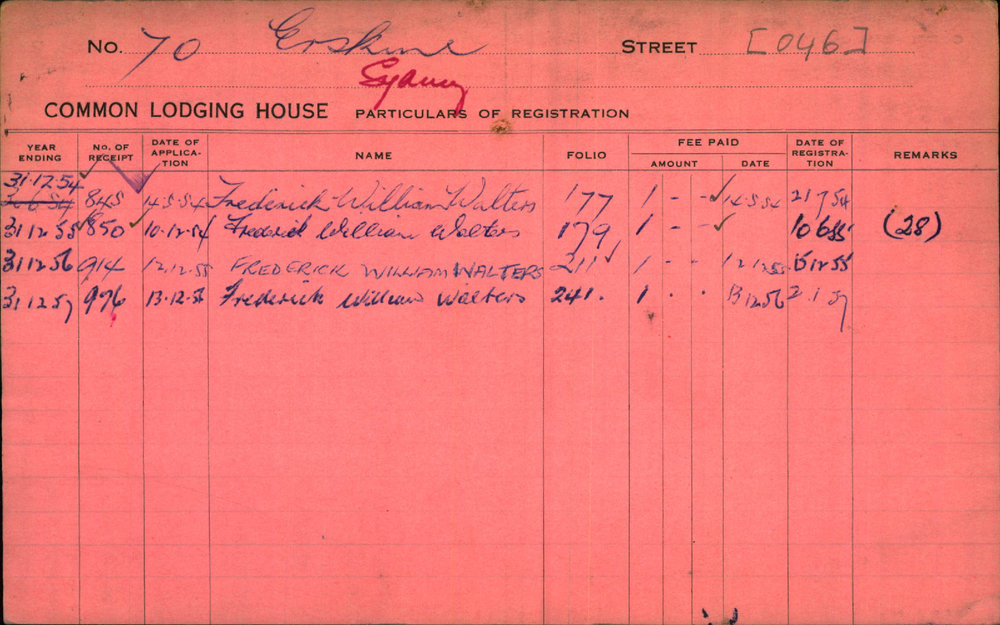 No. 70 Erskine STREET [046]
Sydney
COMMON LODGING HOUSE PARTICULARS OF REGISTRATION
YEAR ENDING No. OF RECEIPT DATE OF APPLICA-TION NAME FOLIO FEE PAID AMOUNT DATE DATE OF REGISTRA-TION REMARKS
31.12.54
30 6 54 845 14 5 54 Frederick William Walters 177 1 - - 14 5 54 21 7 54
31 12 55 850 10.12.54 Frederick William Walters 179 1 - - 10 6 55 (28)
31 12 56 914 12.12.55 FREDERICK WILLIAM WALTERS 211 1 - - 12 12 55 15 12 55
31.12.57 976 13.12.56 Frederick William Walters 241. 1 . . 13 12 56 2 1 57